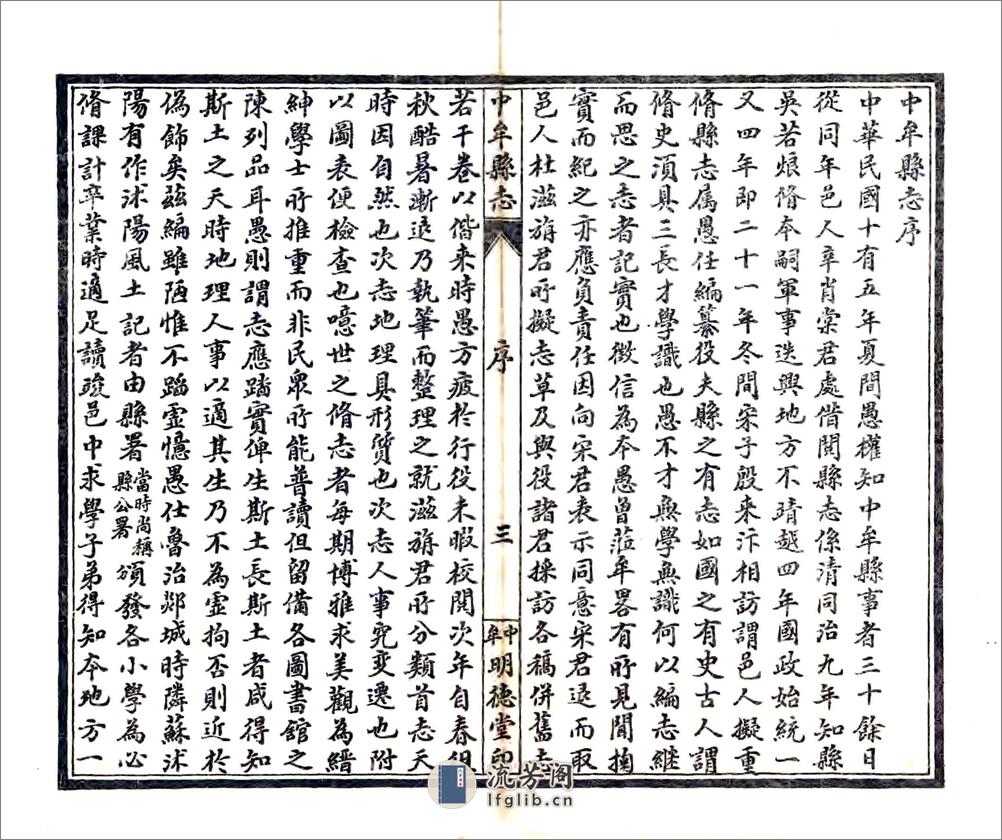 中牟縣志序
中華民國十有五年夏間愚權知中牟縣事者三十餘日
從同年邑人辛肖棠君處借閱縣志係清同治九年知縣
吳若烺脩本嗣軍事迭興地方不靖越四年國政始統一
又四年即二十一年冬間宋子殷來汴相訪謂邑人擬重
脩縣志属愚任編纂役夫縣之有志如國之有史古人謂
脩史須具三長才學識也愚不才無學無識何以編志継
而思之志者記實也徵信為本愚曾蒞牟畧有所見聞摘
實而紀之亦應負責任因向宋君表示同意宋君退而取
邑人杜滋旃君所擬志草及與役諸君採訪各稿併舊志
中牟縣志
序
三
中牟明德堂印
若干卷以偕来時愚方疲於行役未暇校閱次年自春徂
秋酷暑漸退乃執筆而整理之就滋旃君所分類首志天
時因自然也次志地理具形質也次志人事究变遷也附
以圖表便檢查也噫世之脩志者每期博雅求美觀為縉
紳學士所推重而非民眾所能普讀但留備各圖書館之
陳列品耳愚則謂志應踏實俾生斯土長斯土者咸得知
斯土之天時地理人事以適其生乃不為虛拘否則近於
偽飾矣茲編雖陋惟不蹈虛憶愚仕魯治郯城時隣蘇沭
陽有作沭陽風土記者由縣署當時尚稱縣公署頒發各小學為必
脩課計卒業時適足讀竣邑中求學子弟得知本地方一
流芳阁
lfglib.cn